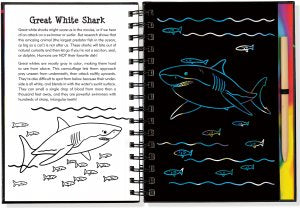 Great White Shark
Great white sharks might scare us in the movies, or if we hear
of an attack on a swimmer or surfer. But research shows that
this amazing animal (the largest predator fish in the ocean,
as big as a car!) is not after us. These sharks will take out of
natural curiosity and then let go if you're not a sea lion, seal,
or dolphin. Humans are NOT their favorite dish!
Great whites are mostly gray in color, making them hard
to see from above. This camouflage lets them approach
prey unseen from underneath, then attack swiftly upwards.
They're also difficult to spot from below because their under-
side is all white, and blends in with the waters' bright surface.
They can smell a single drop of blood from more than a
thousand feet away, and they are powerful swimmers with
hundreds of sharp, triangular teeth!